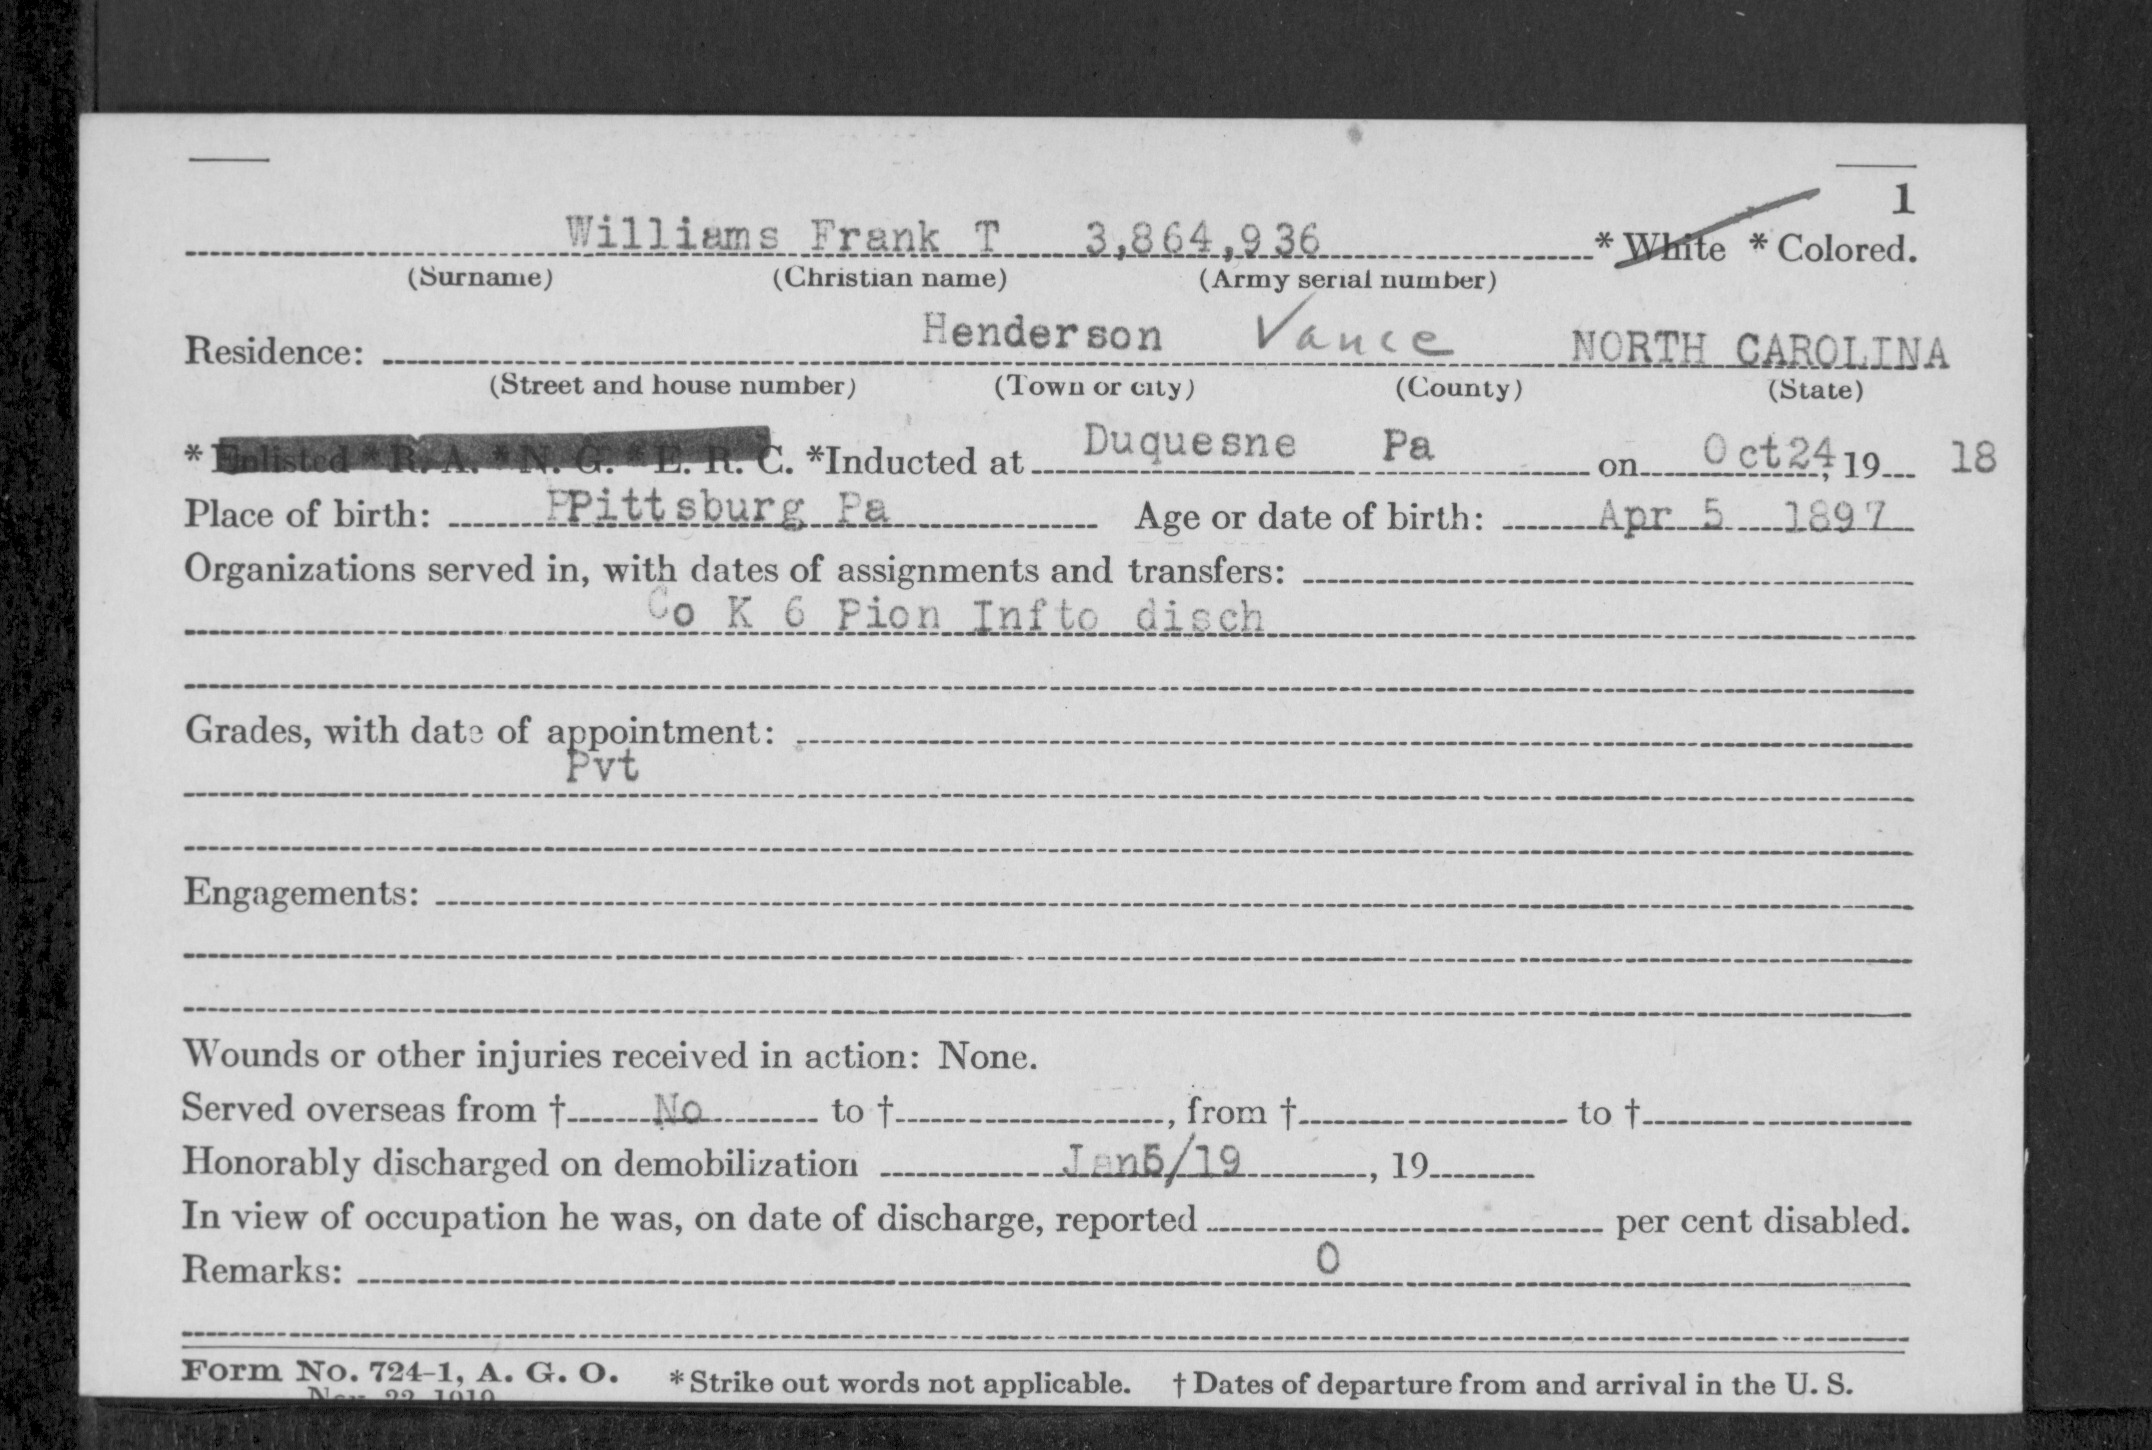 1
Williams Frank T 3,864,936 * White * Colored.
(Surname) (Christian name) (Army serial number)
Residence: Henderson Vance NORTH CAROLINA
(Street and house number) (Town or city) (County) (State)
* Enlisted * R. A. * N. G. * E. R. C. *Inducted at Duquesne Pa on Oct24, 19 18
Place of birth: PPittsburg Pa Age or date of birth: Apr 5 1897
Organizations served in, with dates of assignments and transfers:
Co K 6 Pion Infto disch
Grades, with date of appointment:
Pvt
Engagements:
Wounds or other injuries received in action: None.
Served overseas from † No to †, from † to †
Honorably discharged on demobilization Jan /19, 19
In view of occupation he was, on date of discharge, reported per cent disabled.
0
Remarks:
Form No. 724-1, A. G. O. * Strike out words not applicable. † Dates of departure from and arrival in the U. S.
Nov. 22, 1919